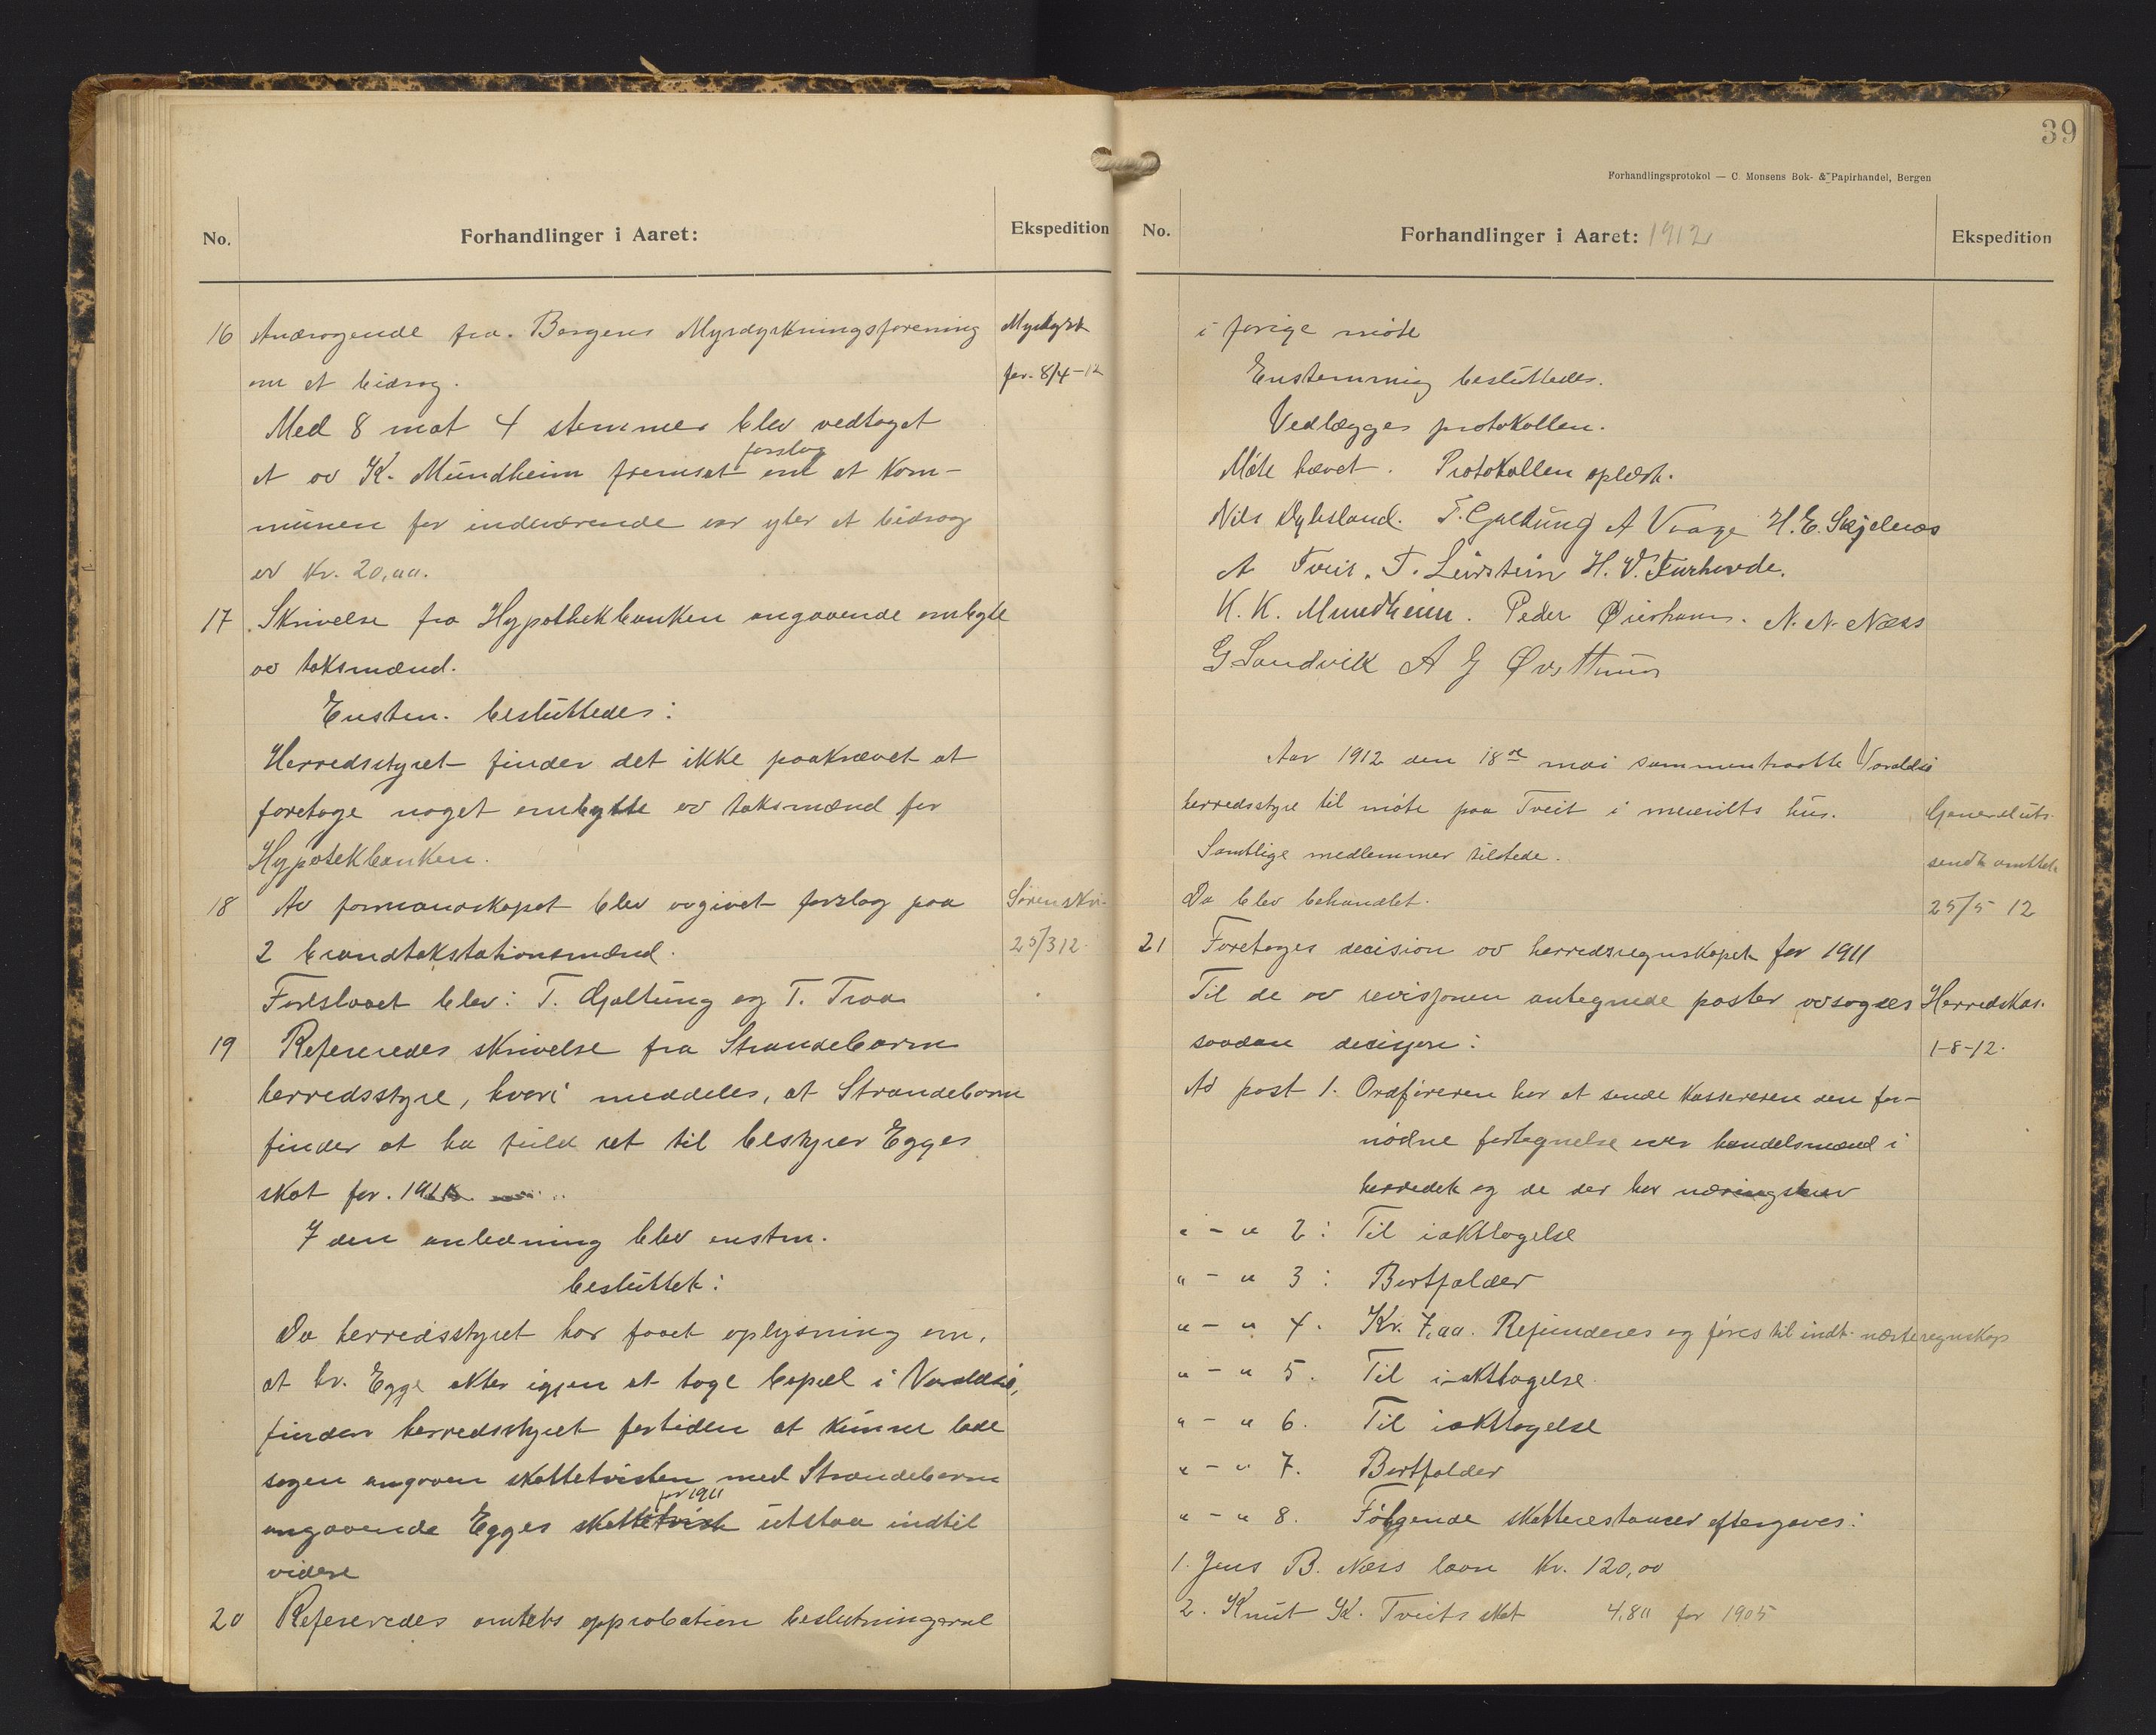 No.
Forhandlinger i Aaret:
Ekspedition
16 Andragende fra. Bergens Myrdyrkningsforening
om et bidrag.
Myrdyrk
for. 8/4-12
Med 8 mot 4 stemmer blev vedtaget
forslag
et av K. Mundheim fremsat om at kom-
munen for indeværende aar yter et bidrag
av kr. 20,00.
17 Skrivelse fra Hypothekbanken angaaende ombytte
av taksmænd.
Enstem. besluttedes:
Herredsstyret finder det ikke paakrævet at
foretage noget ombytte av taksmænd for
Hypotekbanken.
18 Av formandskapet blev avgivet forslag paa
2 brandtakstationsmænd.
Sørenskri-
25/3 12.
Foreslaaet blev: T. Gjaltung og T. Traa
19 Refereredes skrivelse fra Strandebarm
herredsstyre, hvori meddeles, at Strandebarm
finder at ha fuld ret til bestyrer Egges
skat for. 1911
I den anledning blev enstm.
besluttet:
Da herredsstyret har faaet oplysning om,
at hr. Egge akter igjen at tage bopæl i Varaldsø,
finder herredsstyret fortiden at kunne lade
sagen angaaen skattetvisten med Strandebarm
for 1911
angaaende Egges skattetvist utstaa indtil
videre
20 Refereredes amtets approbation beslutningerne
39
Forhandlingsprotokol — C. Monsens Bok- & Papirhandel, Bergen
No.
Forhandlinger i Aaret: 1912
Ekspedition
i forige møte
Enstemmig besluttedes.
Vedlægges protokollen.
Møte hævet. Protokollen oplæst.
Nils Dybsland. T. Gjaltung A Vaage H. E. Skjelnæs
A Tveit. T. Leirstein H. V. Furhovde.
K. K. Mundheim. Peder Øierhavn. N. N. Næss
G Sandvik A J Øvsthuus
Aar 1912 den 18de mai sammentraatte Varaldsø
herredsstyre til møte paa Tveit i menights hus.
Samtlige medlemmer tilstede.
Da blev behandlet.
Generaluts.
sendt amtet
25/5 12
21 Foretages decision av herredsregnskapet for 1911
Til de av revisjonen antegnede poster avsagdes
saadan decisjon:
Herredskas.
1-8-12.
Ad post 1. Ordføreren har at sende kassereren den for-
nødne fortegnelse over handelsmænd i
herredet og de der har næringsskav
" - " 2: Til iakttagelse
" - " 3: Bortfalder
" - " 4. Kr. 7,00. Refunderes og føres til indt. næste regnskap
" - " 5. Til iakttagelse.
" - " 6. Til iakttagelse
" - " 7. Bortfalder
" - " 8. Følgende skatterestancer eftergaves:
1. Jens B. Næss laan Kr. 120,00
2. Knut K. Tveits skat 4,80 for 1905